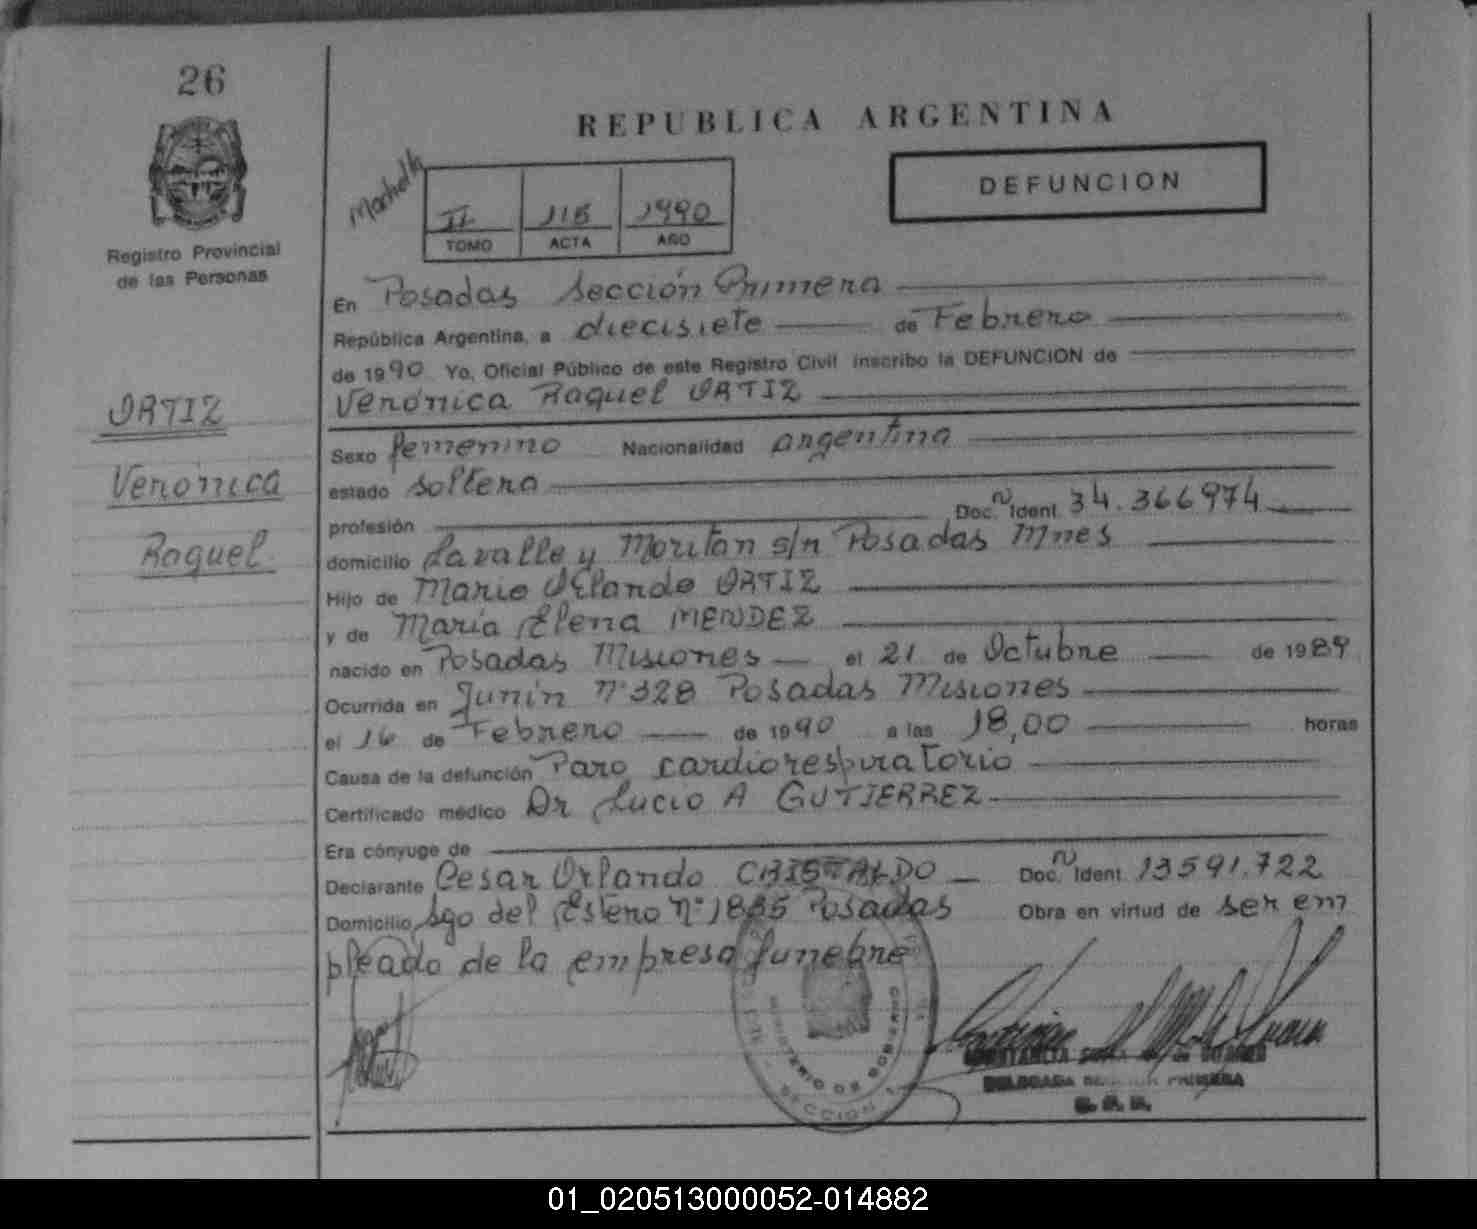 26
Registro Provincial
de las Personas
ORTIZ
Verónica
Raquel
REPUBLICA ARGENTINA
DEFUNCION
II 115 1990
TOMO ACTA AÑO
En Posadas Sección Primera
República Argentina, a diecisiete de Febrero
de 1990 Yo, Oficial Público de este Registro Civil inscribo la DEFUNCION de
Verónica Raquel ORTIZ
Sexo femenino Nacionalidad argentina
estado soltera
profesión Doc. n Ident. 34.366974
domicilio Lavalle y Moritan s/n Posadas Mnes
Hijo de Mario Orlando ORTIZ
y de María Elena MENDEZ
nacido en Posadas Misiones el 21 de Octubre de 1989
Ocurrida en Junín n° 328 Posadas Misiones
el 16 de Febrero de 1990 a las 18,00 horas
Causa de la defunción Paro cardiorespiratorio
Certificado médico Dr Lucio A GUTIERREZ
Era cónyuge de
Declarante Cesar Orlando CRISTALDO Doc. n Ident. 13591.722
Domicilio Sgo del Estero n° 1885 Posadas Obra en virtud de ser em
pleado de la empresa funebre
MINISTERIO DE GOBIERNO
SECCION 1
DELEGADA SECCION PRIMERA
01_020513000052-014882